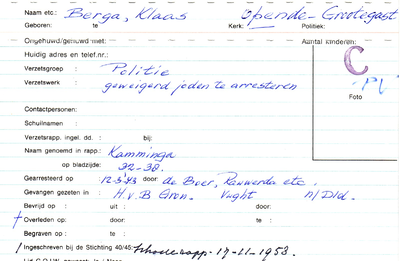 Naam etc.: Berga, Klaas Opende - Grootegast
Geboren: te Kerk: Politiek:
Ongehuwd/gehuwd met: Aantal kinderen:
Huidig adres en telef.nr.:
Verzetsgroep : Politie C
Verzetswerk : geweigerd joden te arresteren
Foto
Contactpersonen:
Schuilnamen :
Verzetsrapp. ingel. dd. : bij:
Naam genoemd in rapp.: Kamminga
op bladzijde: 32-38.
Gearresteerd op : 12-5-43 door: de Beer, Rauwerda etc.
Gevangen gezeten in : H.v.B Gron. Vught n/Dld.
Bevrijd op : uit : door:
Overleden op: door: te :
Begraven op : te :
Ingeschreven bij de Stichting 40/45: 17-11-1953.